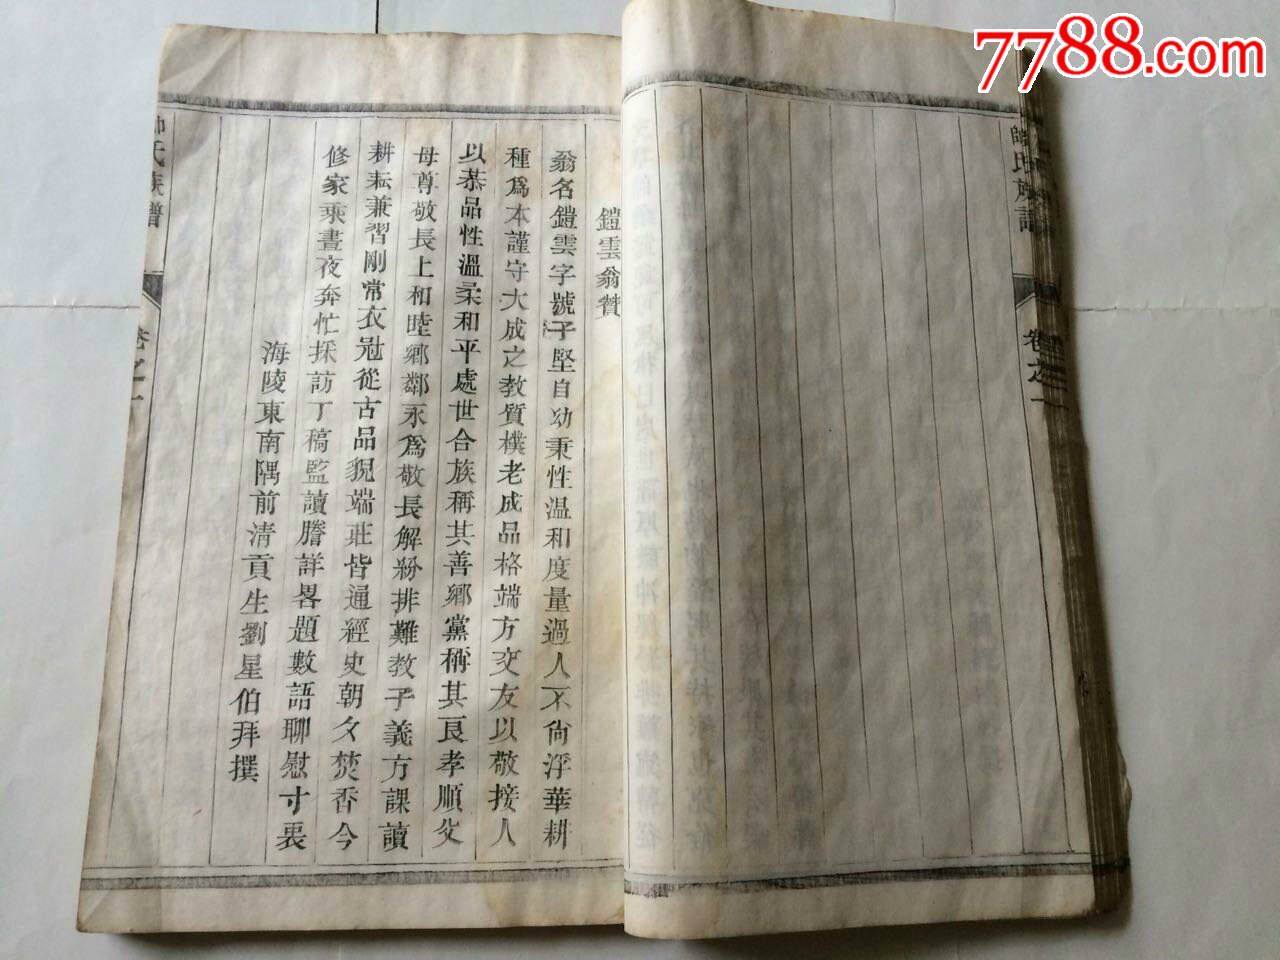 7788.com
鎧雲翁贊
翁名鎧雲字號子堅自幼秉性温和度量過人不尙浮華耕
種爲本謹守大成之教質樸老成品格端方交友以敬接人
以恭品性溫柔和平處世合族稱其善鄉黨稱其良孝順父
母尊敬長上和睦鄉鄰永爲敬長解紛排難教子義方課讀
耕耘兼習剛常衣冠從古品貌端莊皆通經史朝夕焚香今
修家乘晝夜奔忙採訪丁稿監讀謄詳畧題數語聊慰寸衷
海陵東南隅前清貢生劉星伯拜撰
氏族譜
卷之一
氏族譜
卷之一